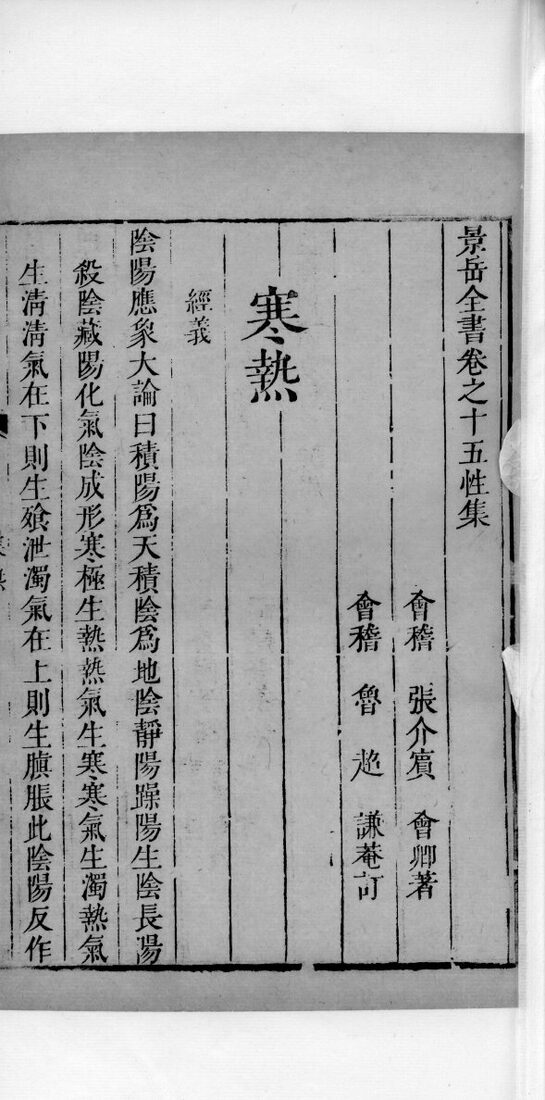 景岳全書卷之十五性集
會稽 張介賓 會卿著
會稽 魯超 謙菴訂
寒熱
經義
陰陽應象大論曰積陽爲天積陰爲地陰靜陽躁陽生陰長陽
殺陰藏陽化氣陰成形寒極生熱熱氣生寒寒氣生濁熱氣
生淸淸氣在下則生飱泄濁氣在上則生䐜脹此陰陽反作